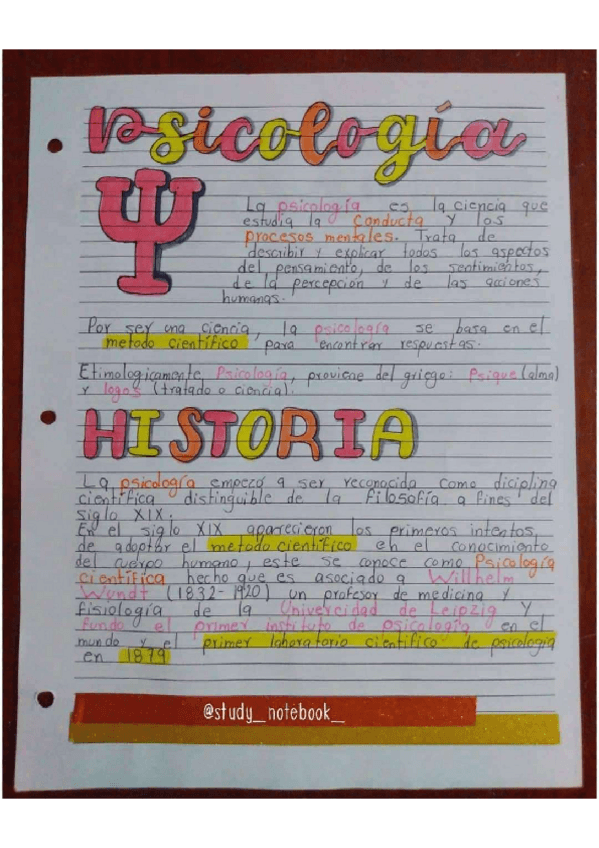 Psicología
La psicología es la ciencia que
estudia la conducta y los
procesos mentales. Trata de
describir y explicar todos los aspectos
del pensamiento, de los sentimientos,
de la percepción y de las acciones
humanas.
Por ser una ciencia, la psicología se basa en el
metodo científico, para encontrar respuestas.
Etimologicamente Psicología, proviene del griego: Psique (alma)
y logos (tratado o ciencia).
HISTORIA
La psicología empezó a ser reconocida como diciplina
científica distinguible de la filosofía a fines del
siglo XIX.
En el siglo XIX aparecieron los primeros intentos
de adoptar el metodo científico en el conocimiento
del cuerpo humano, este se conoce como Psicología
científica hecho que es asociado a Willhelm
Wundt (1832-1920) un profesor de medicina y
fisiología de la Univercidad de Leipzig y
fundo el primer instituto de psicología en el
mundo y el primer laboratorio científico de psicologia
en 1879
@study_notebook_